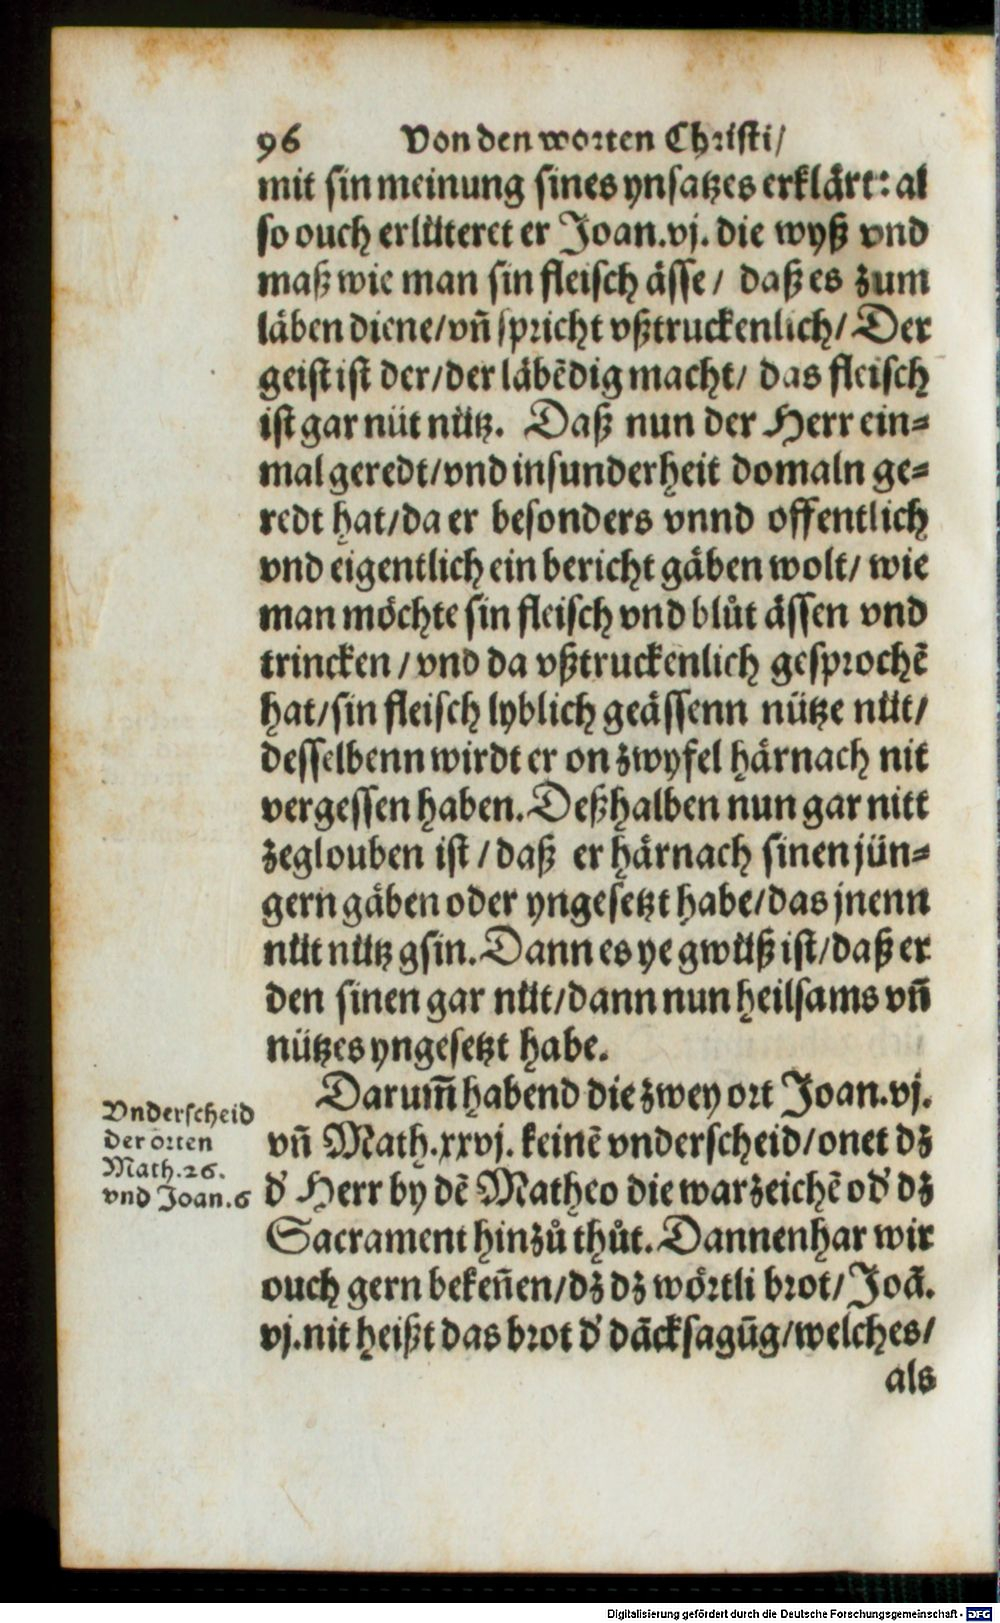 96 Von den worten Christi/
mit sin meinung sines ynsatzes erklärt: al
so ouch erlüteret er Joan.vj. die wyß vnd
maß wie man sin fleisch ässe/ daß es zum
läben diene/vñ spricht vßtruckenlich/ Der
geist ist der/der läbẽdig macht/ das fleisch
ist gar nüt nütz. Daß nun der Herr ein⸗
mal geredt/vnd insunderheit domaln ge⸗
redt hat/da er besonders vnnd offentlich
vnd eigentlich ein bericht gäben wolt/ wie
man möchte sin fleisch vnd blůt ässen vnd
trincken/vnd da vßtruckenlich gesprochẽ
hat/sin fleisch lyblich geässenn nütze nüt/
desselbenn wirdt er on zwyfel härnach nit
vergessen haben. Deßhalben nun gar nitt
zeglouben ist/daß er härnach sinen jün⸗
gern gäben oder yngesetzt habe/das jnenn
nüt nütz gsin. Dann es ye gwüß ist/daß er
den sinen gar nüt/dann nun heilsams vñ
nützes yngesetzt habe.
Darum̃ habend die zwey ort Joan.vj.
vñ Math.xxvj. keinẽ vnderscheid/onet dz
d' Herr by dẽ Matheo die warzeichẽ od' dz
Sacrament hinzů thůt. Dannenhar wir
ouch gern bekeñen/dz dz wörtli brot/Joã.
vj. nit heißt das brot d' dãcksagũg/welches/
als
Vnderscheid
der orten
Math.26.
vnd Joan.6
Digitalisierung gefördert durch die Deutsche Forschungsgemeinschaft - DFG